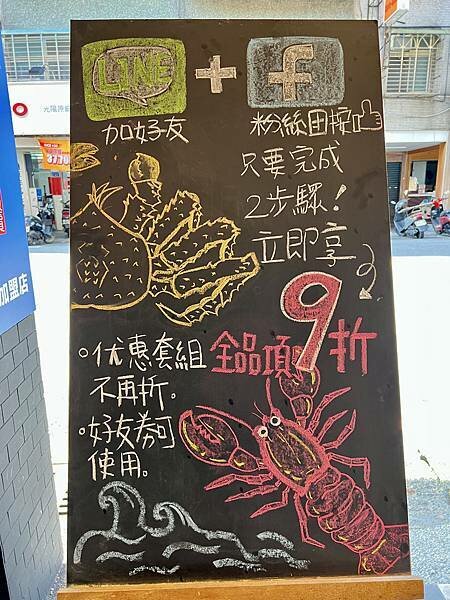 LINE + f
加好友
粉絲団按
只要完成
2步驟!
立即享
全品項9折
。优惠套組
不再折。
。好友券可
使用。
加盟店